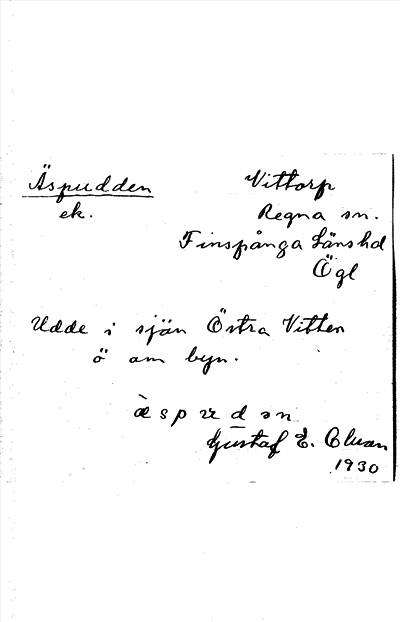 Äspudden Vittorp
ek. Regna sn.
Finspånga läns hd
Ögl
Udde i sjön Östra Vitten
ö om byn.
Gustaf E. Olsson
1930